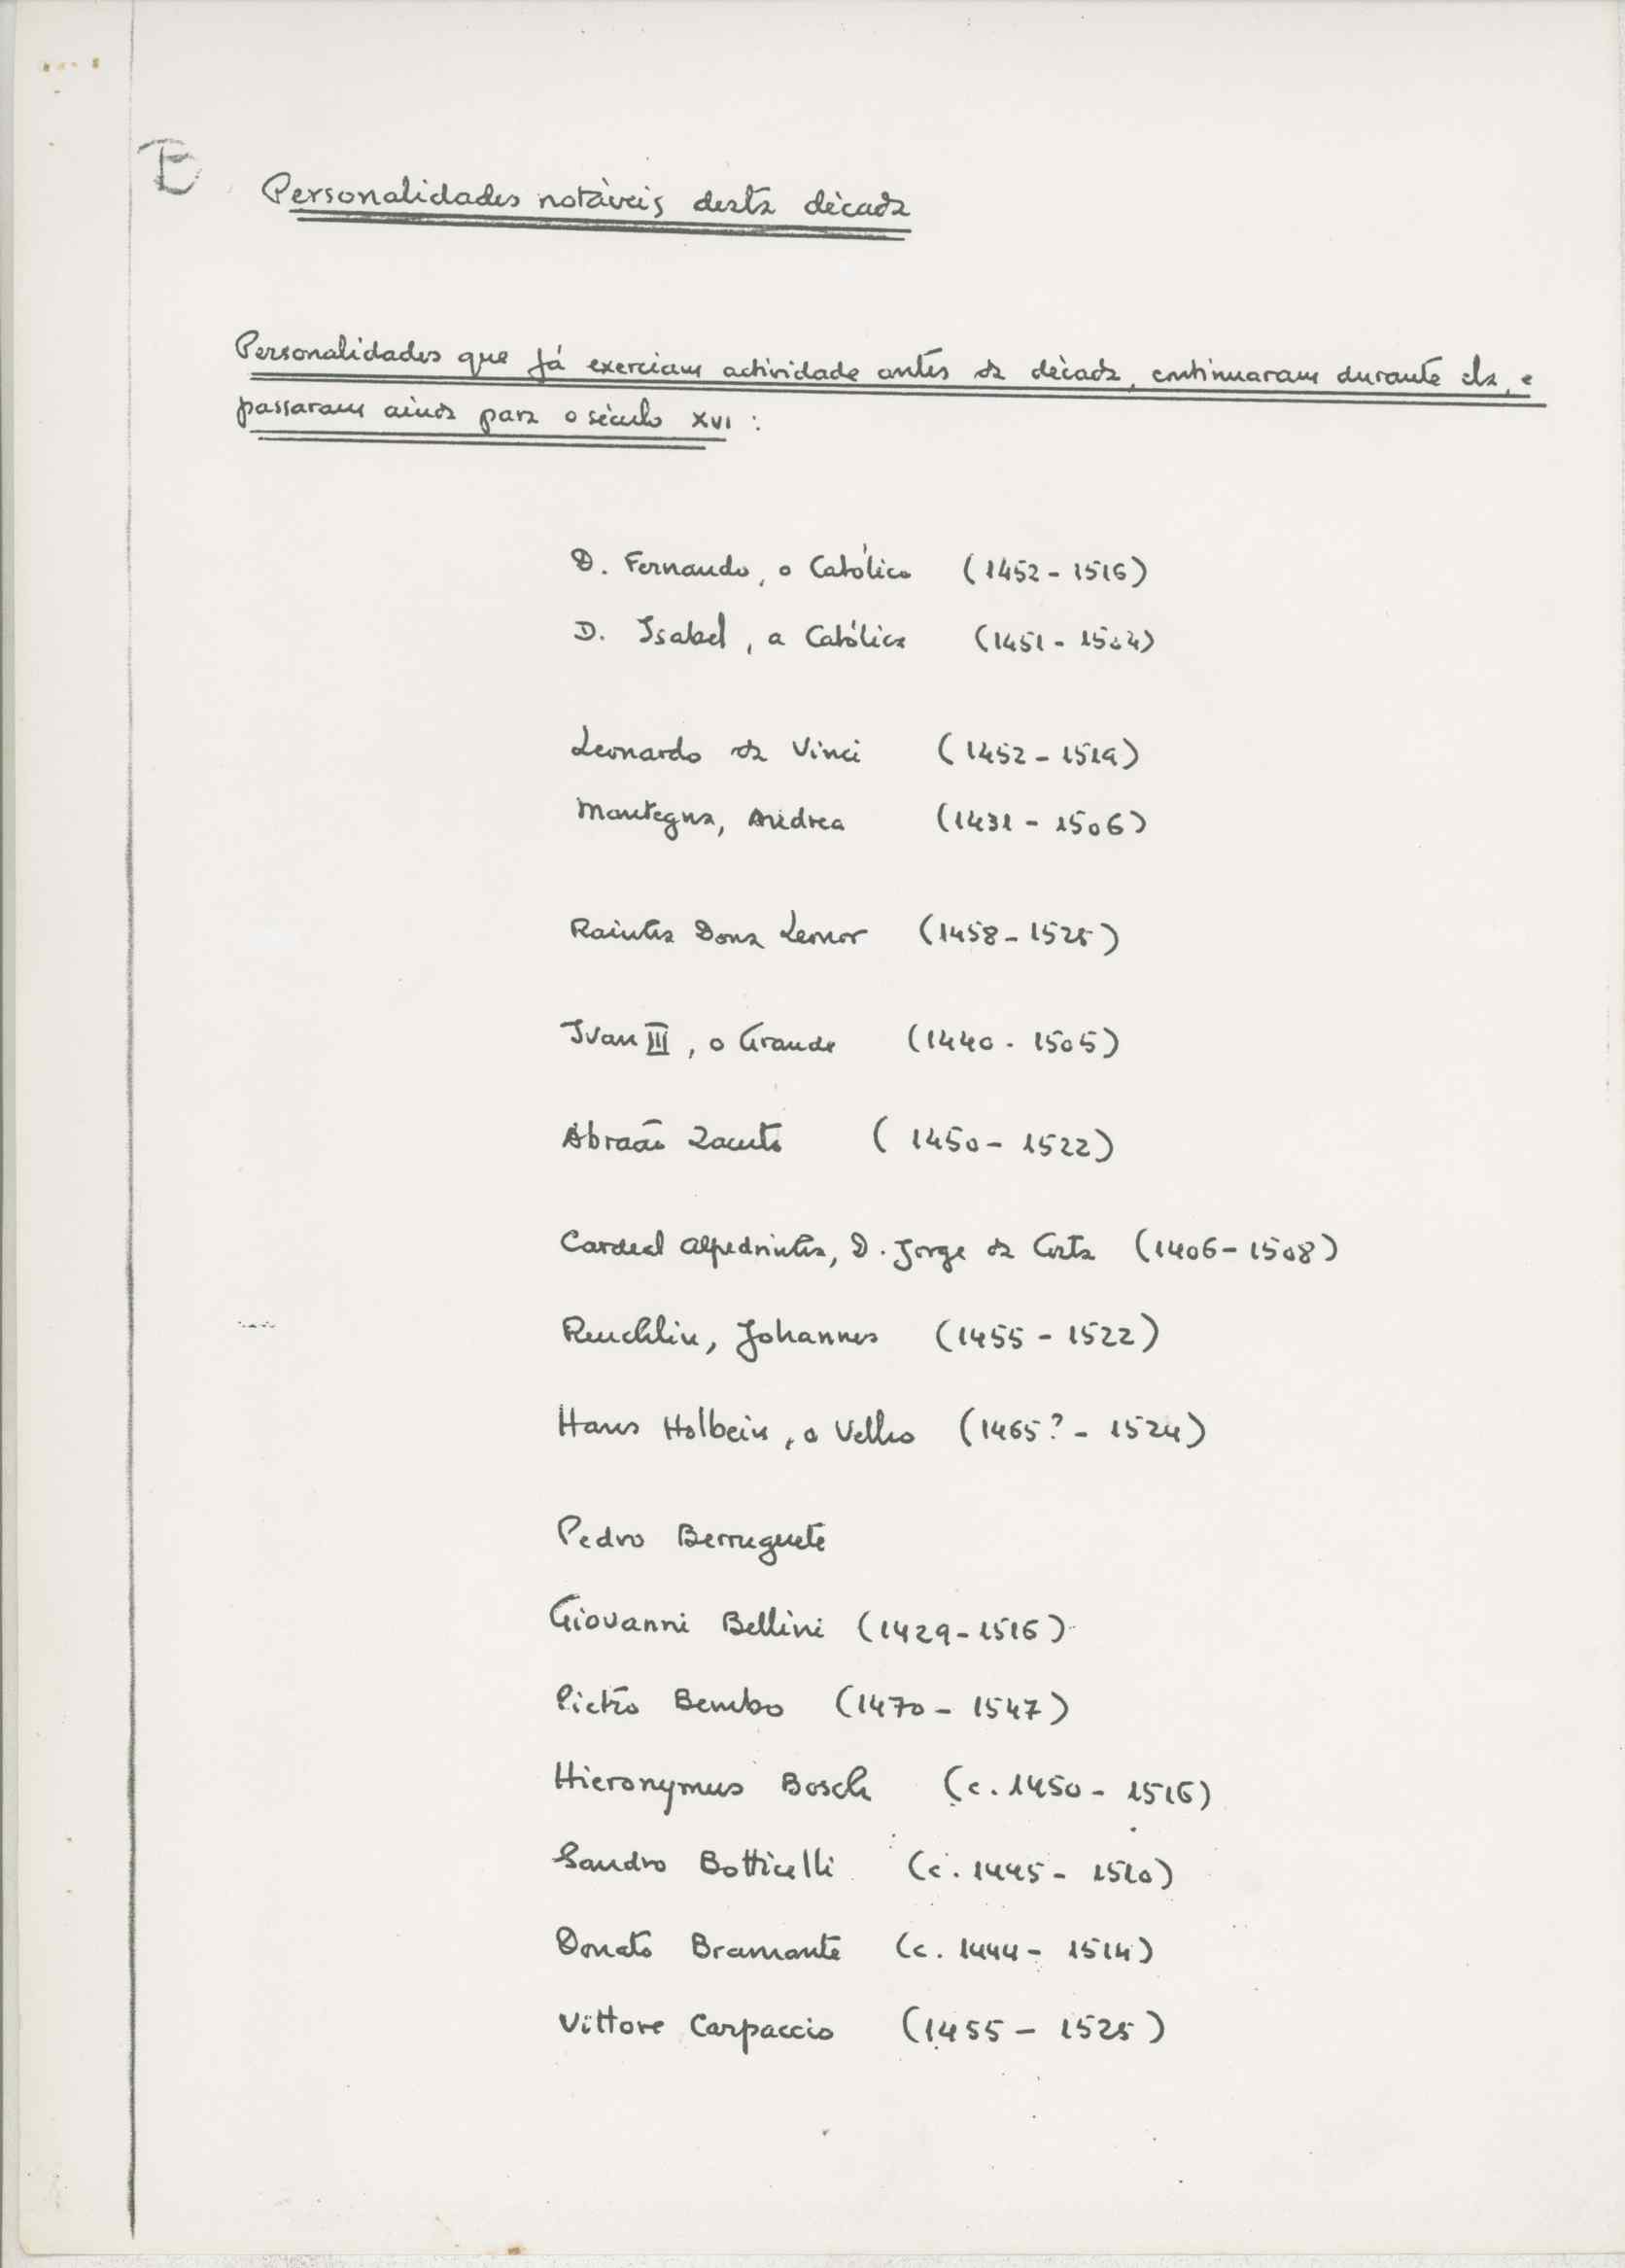 E
Personalidades notáveis desta década
Personalidades que já exerciam actividade antes da década, continuaram durante ela, e
passaram ainda para o século XVI :
D. Fernando, o Católico (1452 - 1516)
D. Isabel, a Católica (1451 - 1504)
Leonardo da Vinci (1452 - 1519)
Mantegna, Andrea (1431 - 1506)
Rainha Dona Leonor (1458 - 1525)
Ivan III, o Grande (1440 - 1505)
Abraão Zacuto (1450 - 1522)
Cardeal Alpedrinha, D. Jorge da Costa (1406 - 1508)
Reuchlin, Johannes (1455 - 1522)
Hans Holbein, o Velho (1465? - 1524)
Pedro Berruguete
Giovanni Bellini (1429 - 1516)
Pietro Bembo (1470 - 1547)
Hieronymus Bosch (c. 1450 - 1516)
Sandro Botticelli (c. 1445 - 1510)
Donato Bramante (c. 1444 - 1514)
Vittore Carpaccio (1455 - 1525)